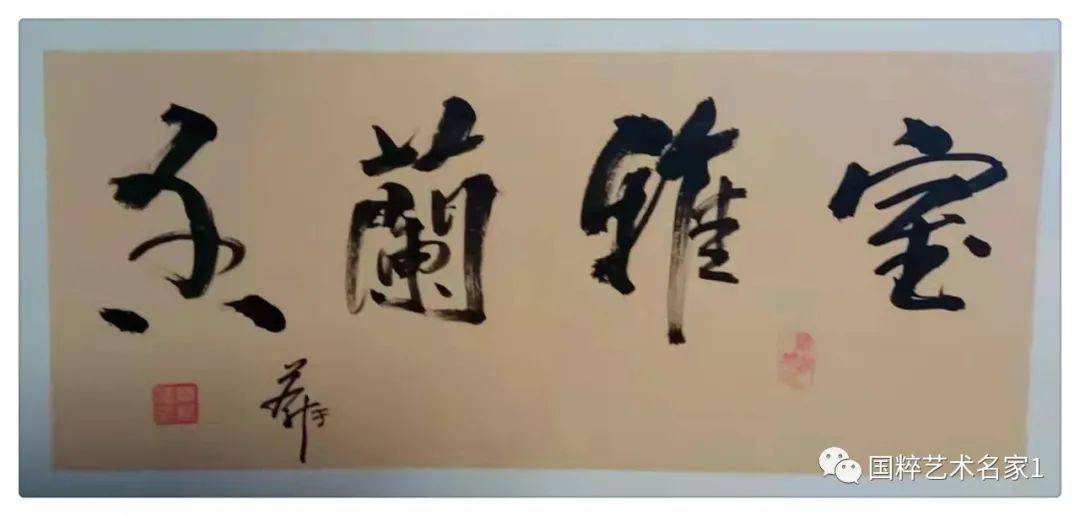 室雅蘭香
国粹艺术名家1